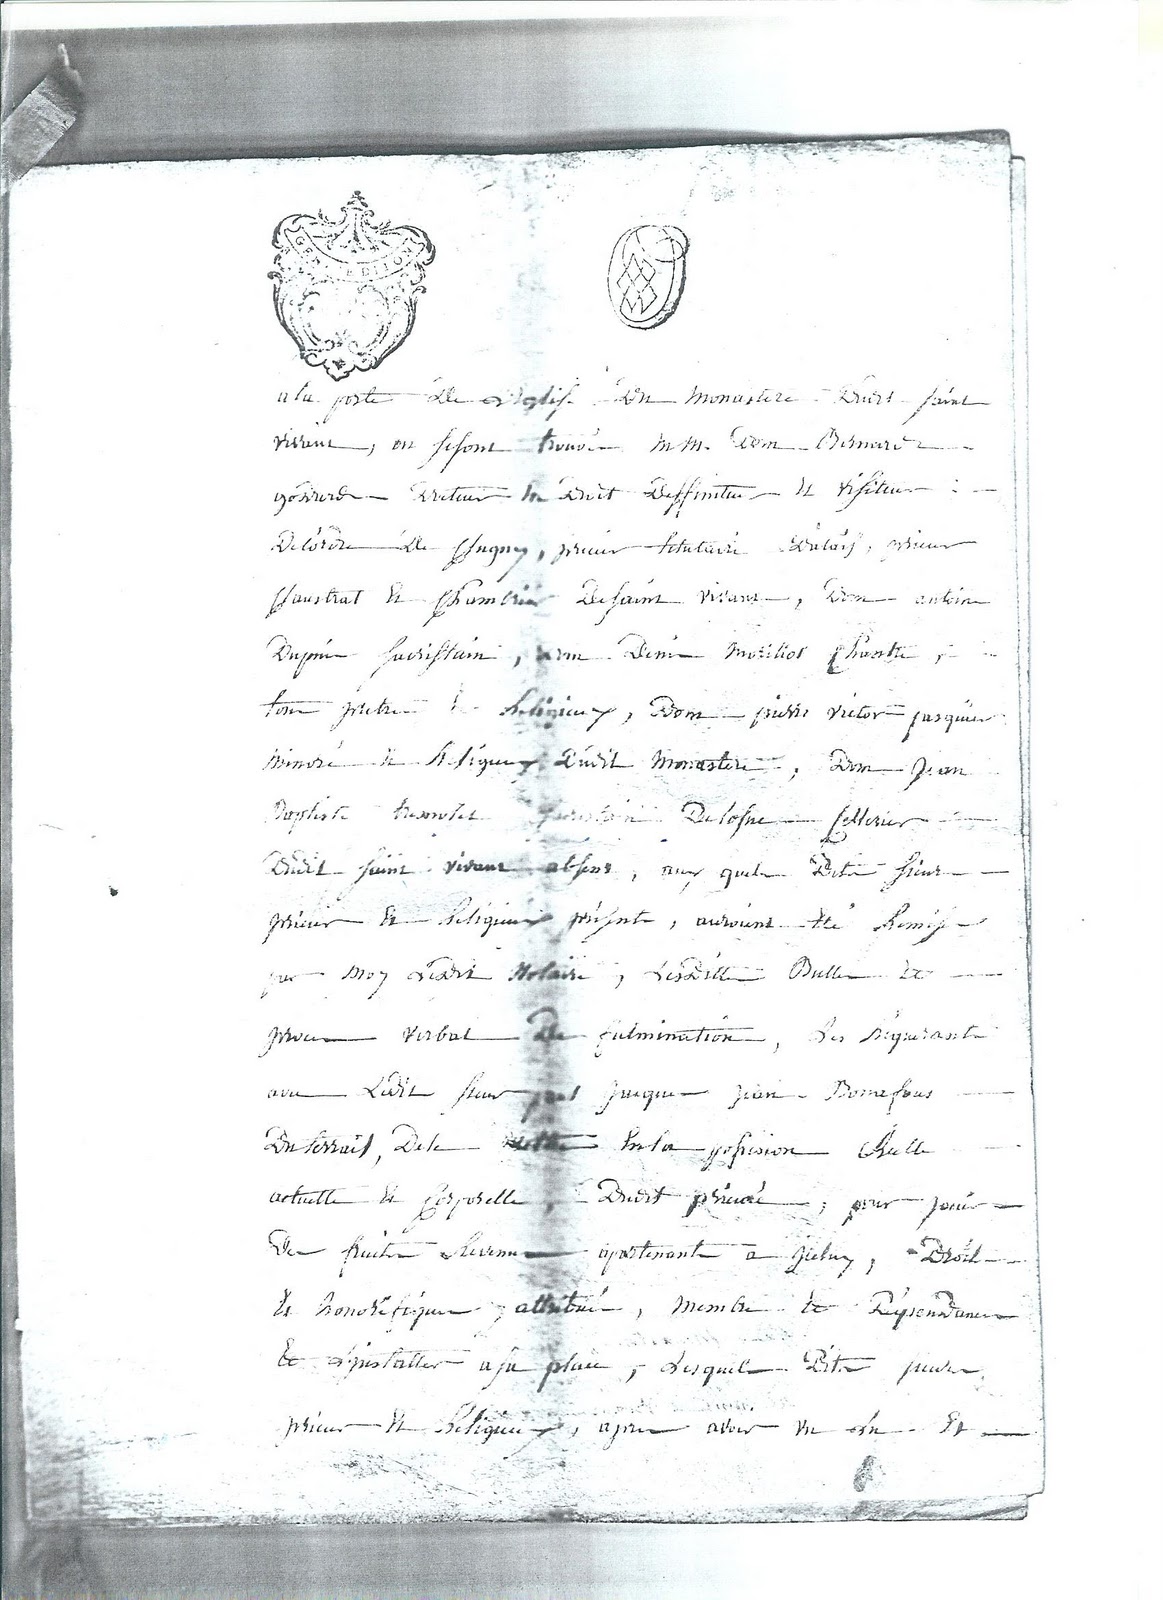 GEN DIJON
a la porte De L'Eglise Du Monastere Dudit saint
vivant, ou se sont trouvé MM. Dom Bernard
Docteur En Droit Deffiniteur Et visiteur
De L'ordre De Clugny, prieur titulaire prieur
Claustral Et Chambrier De saint vivant, Dom antoine
Dupin sacristain, Dom Denis Moritiot Chantre,
tous pretres Et Religieux, Dom pierre victor pasquier
minoré Et Religieux Dudit Monastere, Dom Jean
Baptiste Cellerier
Dudit saint vivant absent, aux quels Dits sieurs
prieur Et Religieux présents, auroient Eté Remises
par Moy Ledit Notaire, Lesdittes Bulles Et
proces verbal De fulmination, Les Requerant
avec Ledit sieur jacques jean Bonnafous
Duterrail, De le mettre En la possession Réelle
actuelle Et Corporelle, Dudit prieuré, pour jouir
Des fruits Revenus apartenants a jceluy, Droits
Et honorifiques y attribués, Membres Et Dépendances
Et L'jnstaller a sa place, Lesquels Dits sieurs
prieur Et Religieux, apres avoir vu Et